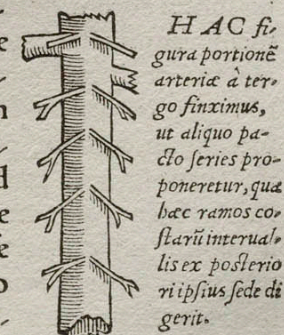 HAC fi-
gura portionẽ
arteriæ à ter-
go finximus,
ut aliquo pa-
cto series pro-
poneretur, qua
hæc ramos co-
starũ interual-
lis ex posterio
ri ipsius sede di
gerit.